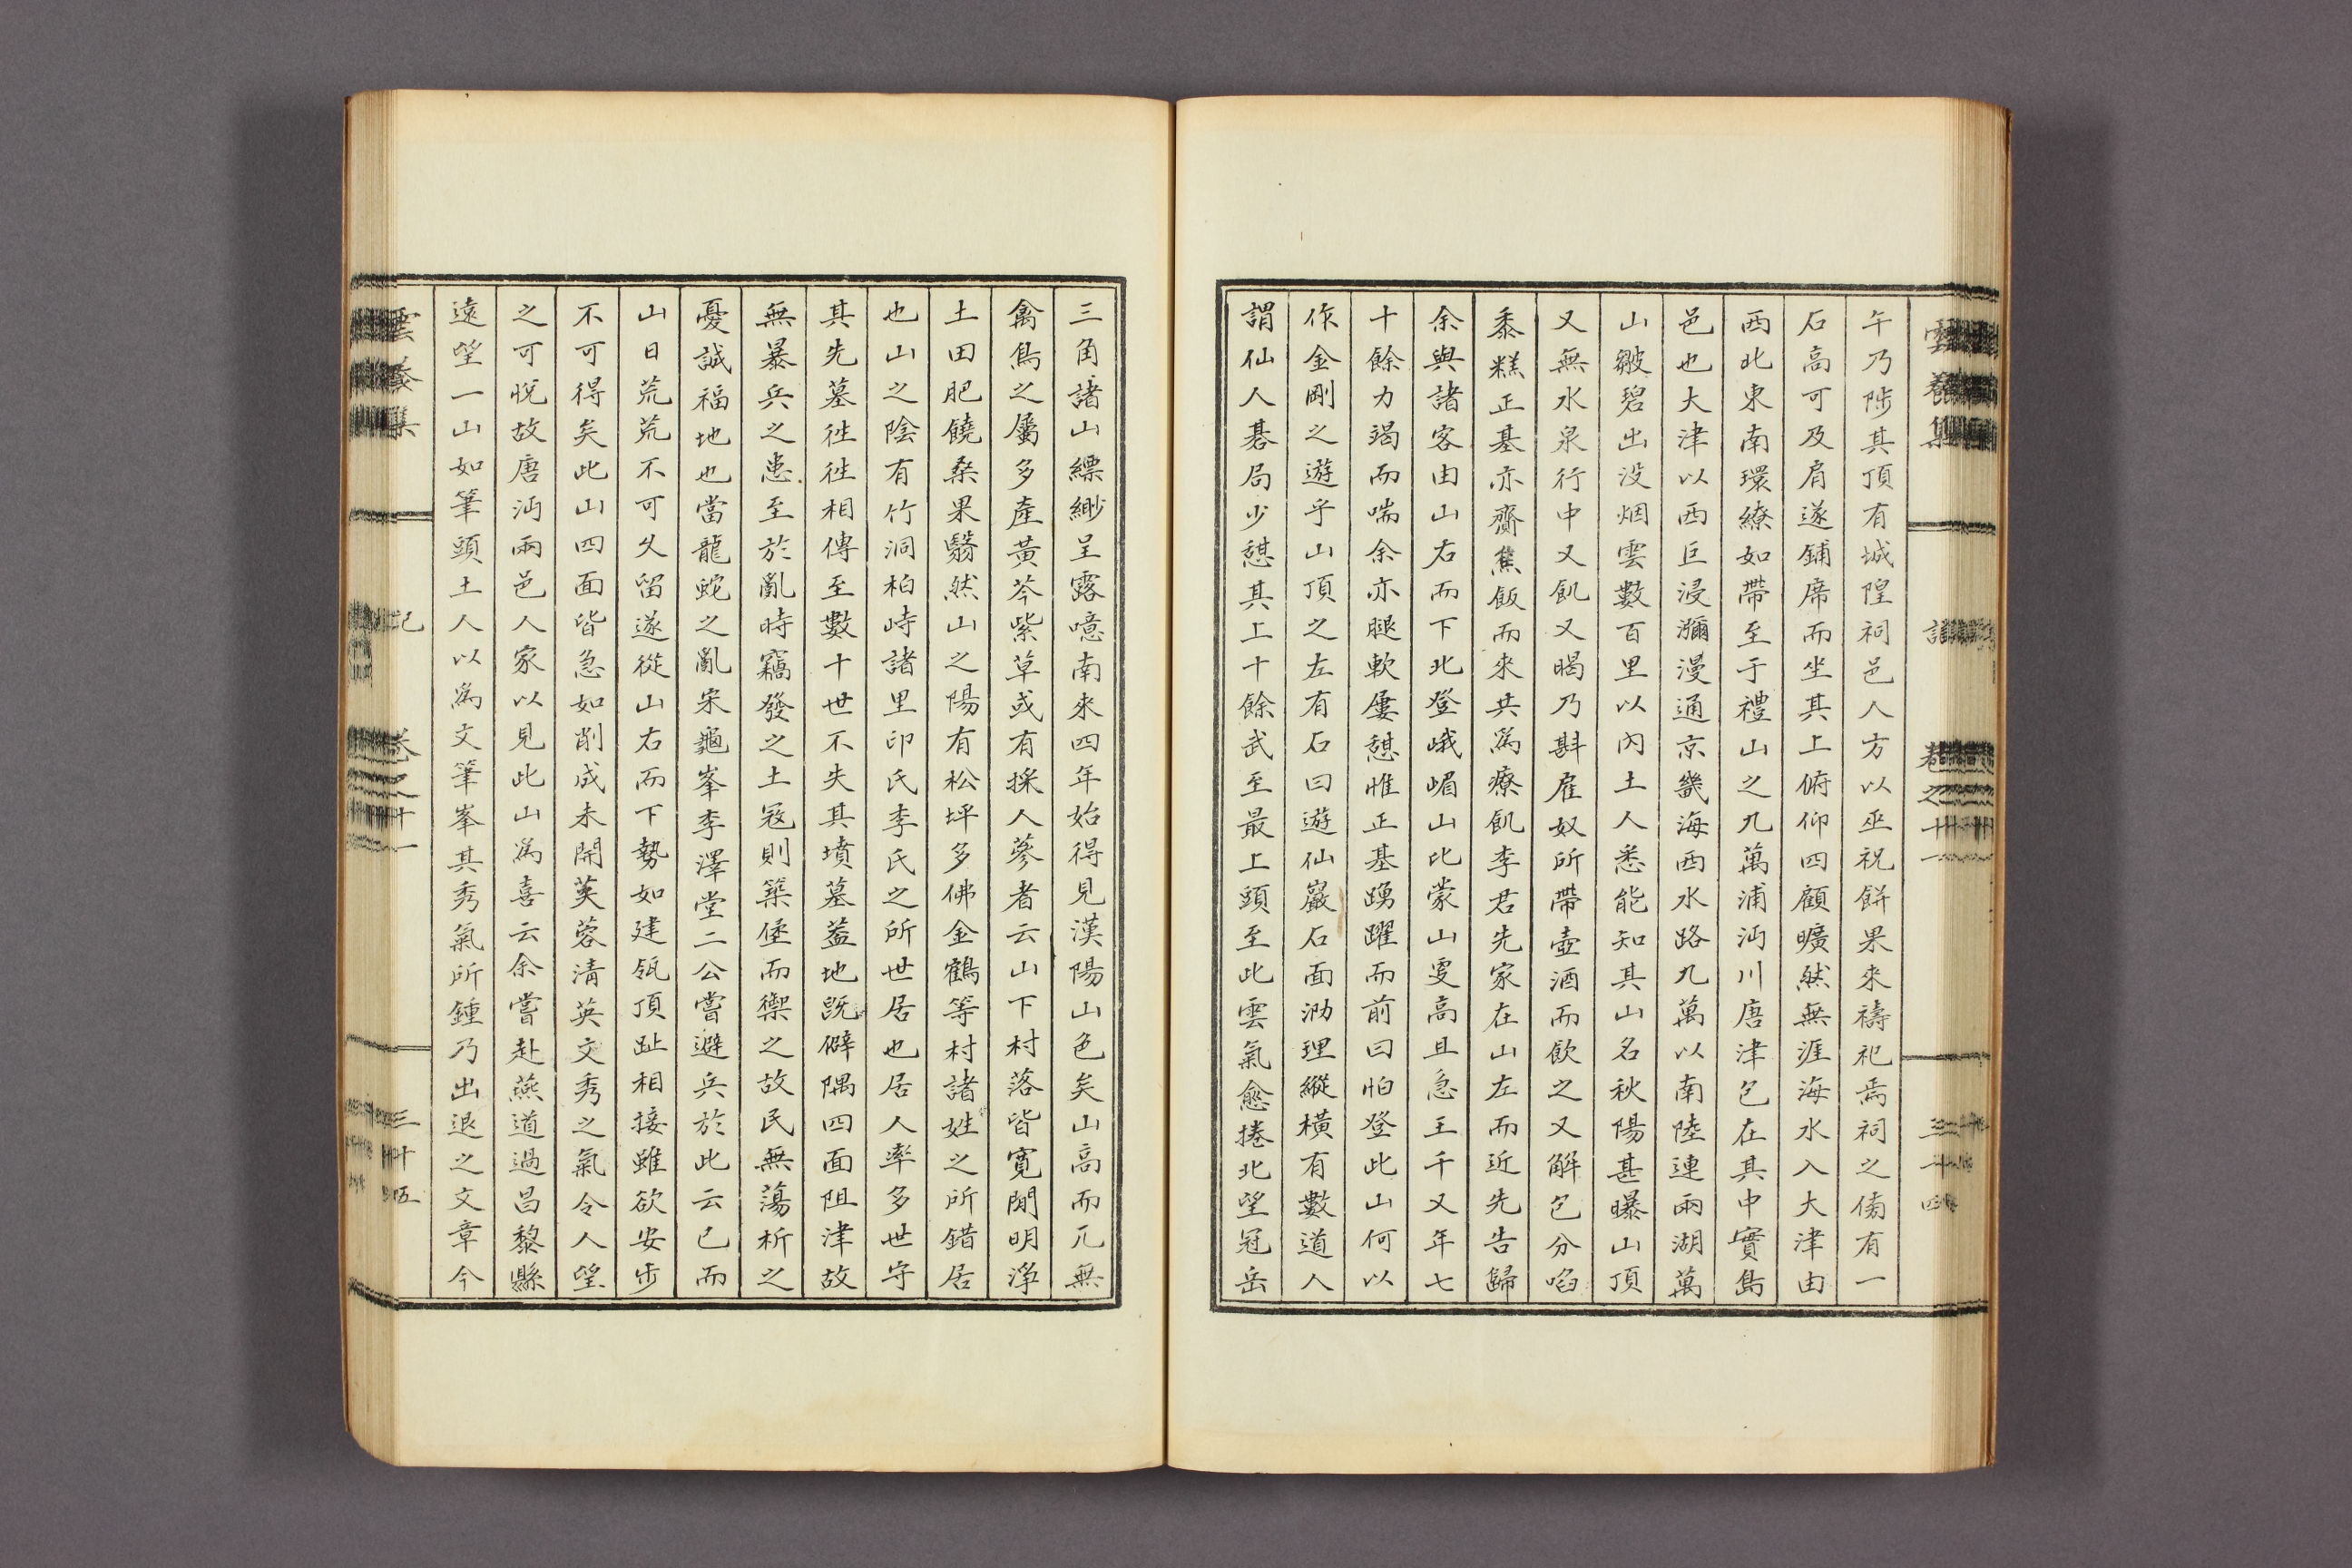 雲養集 記 卷之十一 三十四
午乃陟其頂有城隍祠邑人方以巫祝餅果來禱祀焉祠之傍有一
石高可及肩遂鋪席而坐其上俯仰四顧曠然無涯海水入大津由
西北東南環繚如帶至于禮山之九萬浦沔川唐津包在其中實島
邑也大津以西巨浸瀰漫通京畿海西水路九萬以南陸連兩湖萬
山皴碧出没烟雲數百里以內土人悉能知其山名秋陽甚曝山頂
又無水泉行中又飢又暍乃斟雇奴所帶壺酒而飮之又解包分啗
黍糕正基亦齎蕉飯而來共爲療飢李君先家在山左而近先告歸
余與諸客由山右而下北登峨嵋山比蒙山更高且急王千又年七
十餘力竭而喘余亦腿軟屢憩惟正基踴躍而前曰怕登此山何以
作金剛之遊乎山頂之左有石曰遊仙巖石面泐理縱橫有數道人
謂仙人碁局少憩其上十餘武至最上頭至此雲氣愈捲北望冠岳
三角諸山縹緲呈露噫南來四年始得見漢陽山色矣山高而兀無
禽鳥之屬多產黃芩紫草或有採人蔘者云山下村落皆寬閒明淨
土田肥饒桑果翳然山之陽有松坪多佛金鶴等村諸姓之所錯居
也山之陰有竹洞柏峙諸里印氏李氏之所世居也居人率多世守
其先墓徃徃相傳至數十世不失其墳墓盖地旣僻隅四面阻津故
無暴兵之患至於亂時竊發之土寇則築堡而禦之故民無蕩析之
憂誠福地也當龍蛇之亂宋龜峯李澤堂二公嘗避兵於此云已而
山日荒荒不可久留遂從山右而下勢如建瓴頂趾相接雖欲安步
不可得矣此山四面皆急如削成未開芙蓉淸英文秀之氣令人望
之可悅故唐沔兩邑人家以見此山爲喜云余嘗赴燕道過昌黎縣
遠望一山如筆頭土人以爲文筆峯其秀氣所鍾乃出退之文章今
雲養集 記 卷之十一 三十五